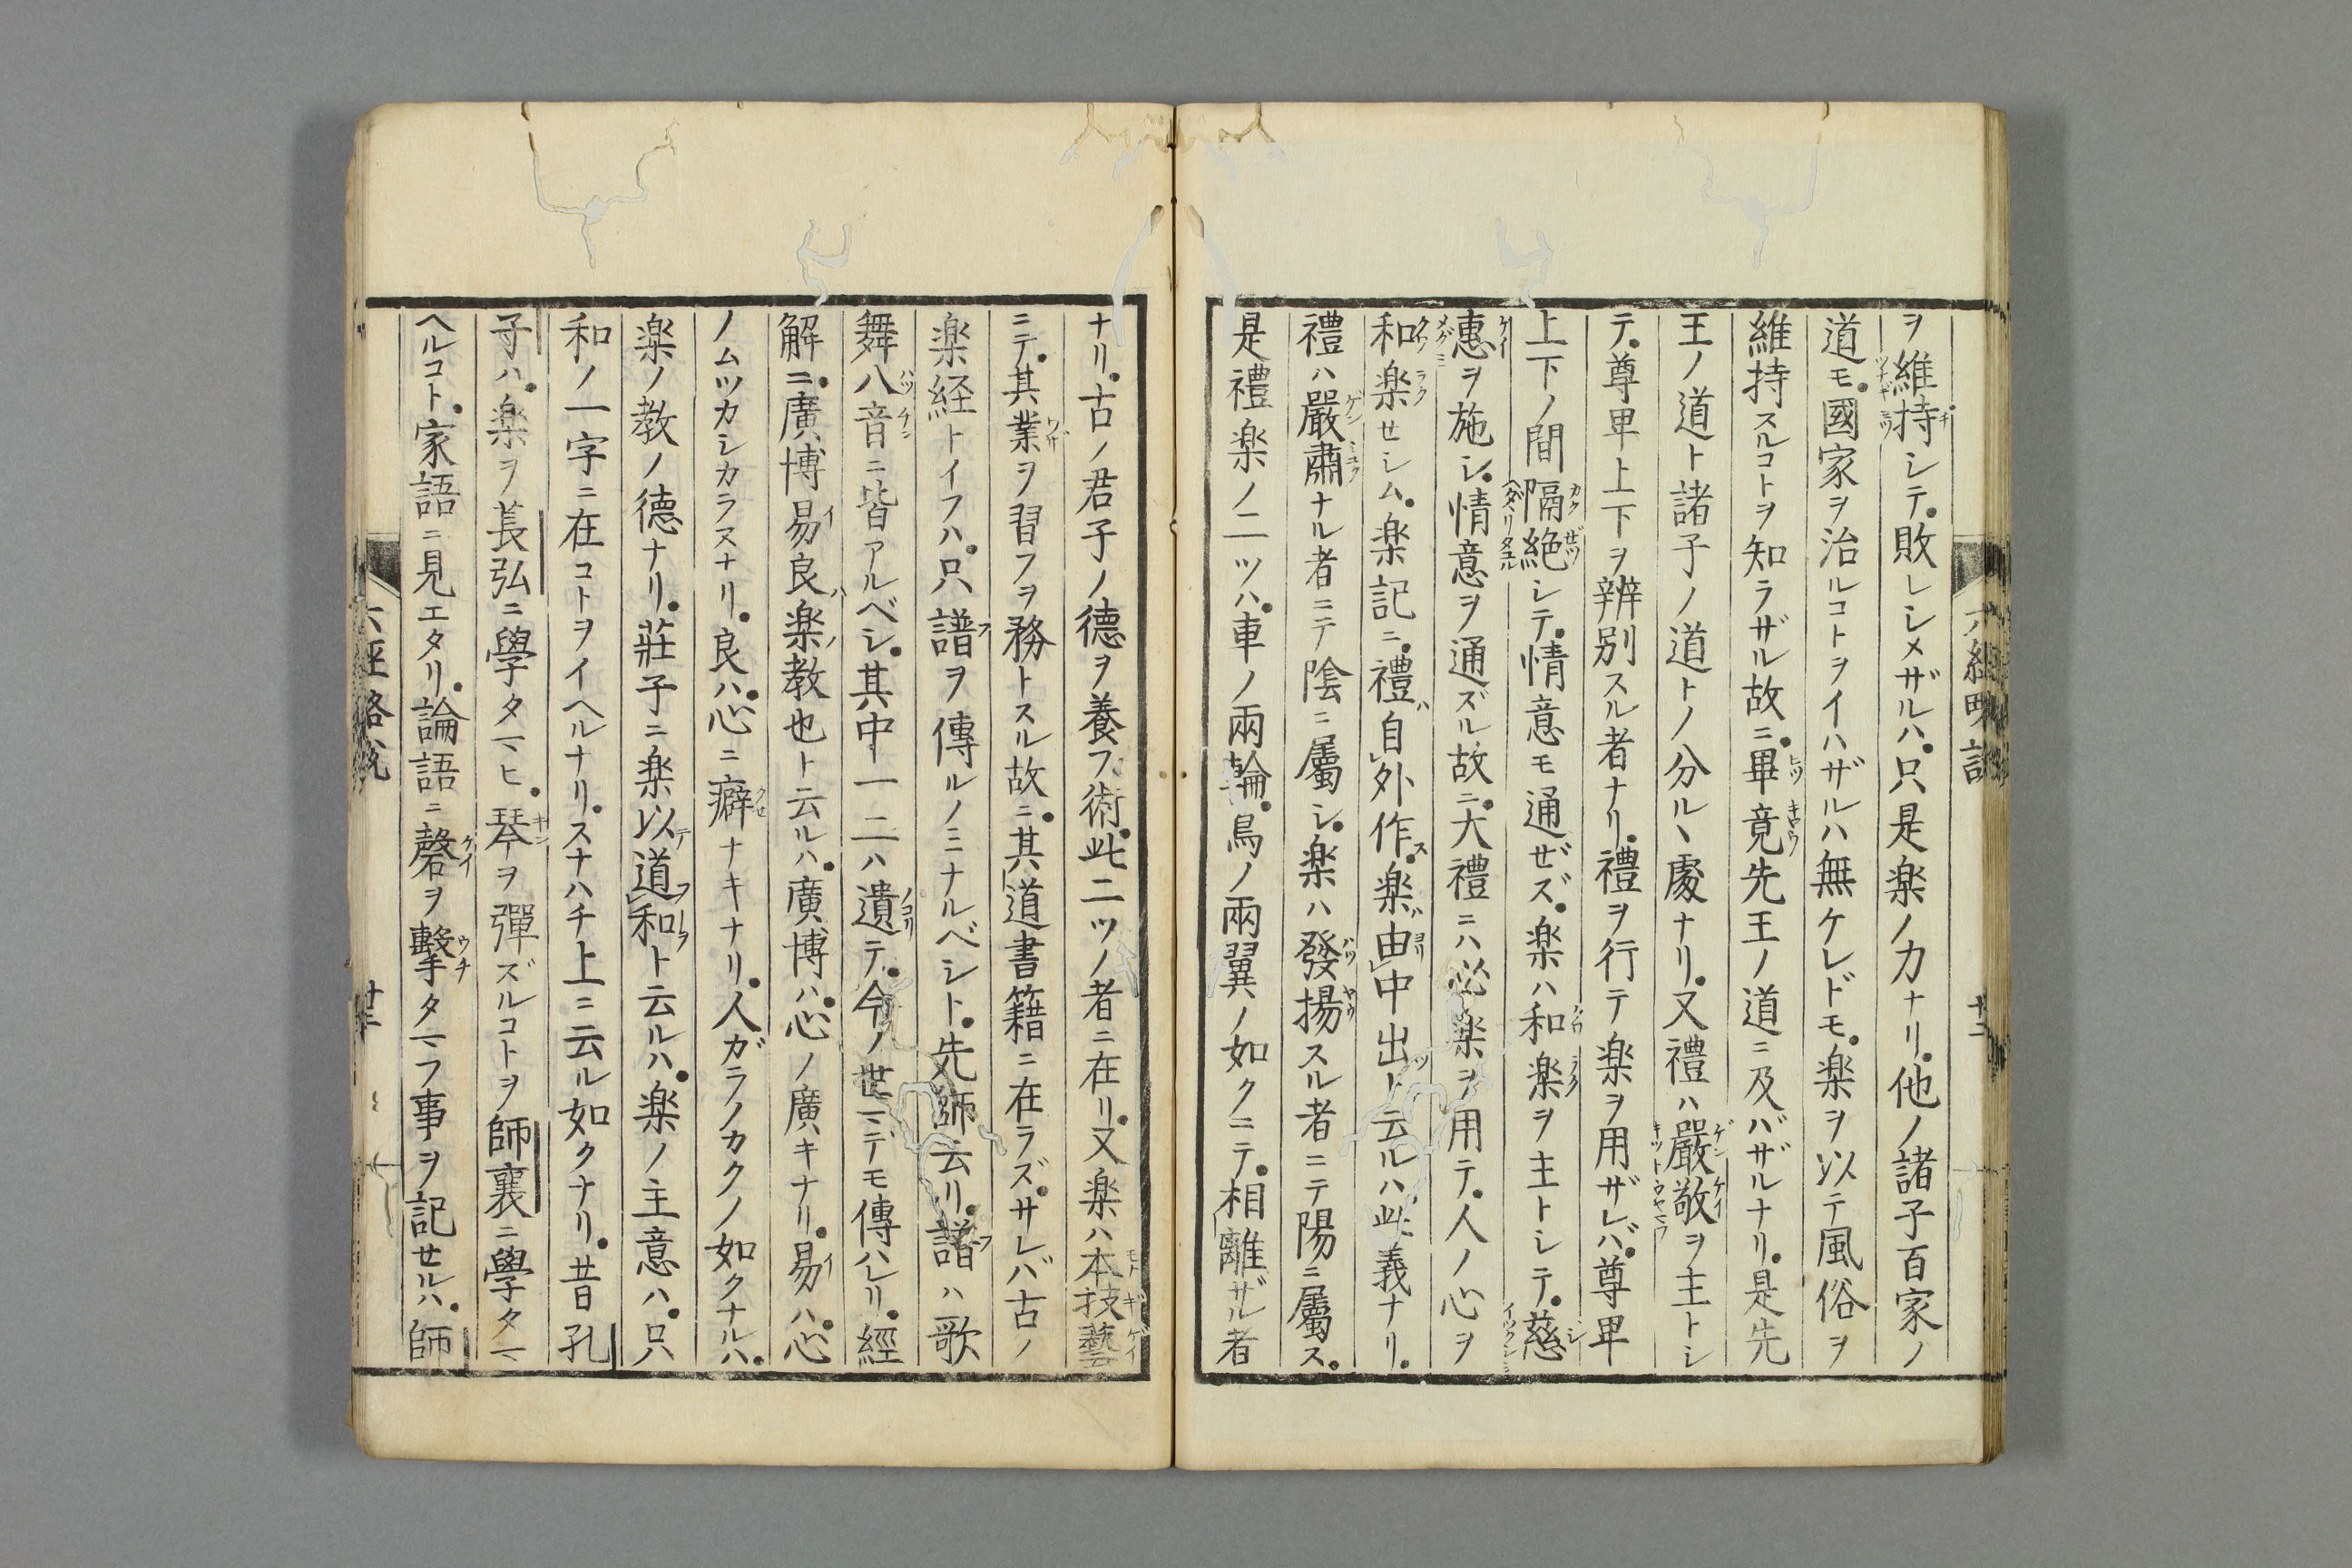 ヲ維持シテ。敗レシメザルハ。只是楽ノ力ナリ。他ノ諸子百家ノ
道モ。國家ヲ治ルコトヲイハザルハ無ケレドモ。楽ヲ以テ風俗ヲ
維持スルコトヲ知ラザル故ニ。畢竟先王ノ道ニ及バザルナリ。是先
王ノ道ト諸子ノ道トノ分ルヽ處ナリ。又禮ハ嚴敬ヲ主トシ
テ。尊卑上下ヲ辨別スル者ナリ。禮ヲ行テ楽ヲ用ザレバ。尊卑
上下ノ間隔絶シテ。情意モ通ぜズ。楽ハ和楽ヲ主トシテ。慈
惠ヲ施シ。情意ヲ通ズル故ニ。大禮ニハ必楽ヲ用テ。人ノ心ヲ
和楽せシム。楽記ニ。禮自外作。楽由中出ト云ルハ此義ナリ。
禮ハ嚴肅ナル者ニテ陰ニ屬シ。楽ハ發揚スル者ニテ陽ニ屬ス。
是禮楽ノ二ツハ。車ノ兩輪。鳥ノ兩翼ノ如クニテ。相離ザル者
ナリ。古ノ君子ノ德ヲ養フ術。此二ツノ者ニ在リ。又楽ハ本技藝
ニテ。其業ヲ習フヲ務トスル故ニ。其道書籍ニ在ラズ。サレバ古ノ
楽経トイフハ。只譜ヲ傳ルノミナルベシト。先師云リ。譜ハ歌
舞八音ニ皆アルベシ。其中一二ハ遺テ。今ノ世マデモ傳ハレリ。經
解ニ。廣博易良楽教也ト云ルハ。廣博ハ。心ノ廣キナリ。易ハ。心
ノムツカシカラヌナリ。良ハ。心ニ癖ナキナリ。人ガラノカクノ如クナルハ。
楽ノ教ノ德ナリ。莊子ニ楽以道和ト云ルハ。楽ノ主意ハ。只
和ノ一字ニ在コトヲイヘルナリ。スナハチ上ニ云ル如クナリ。昔孔
子ハ。楽ヲ萇弘ニ學タマヒ。琴ヲ彈ズルコトヲ師襄ニ學タマ
ヘルコト。家語ニ見エタリ。論語ニ磬ヲ擊タマフ事ヲ記せルハ。師
六經略説